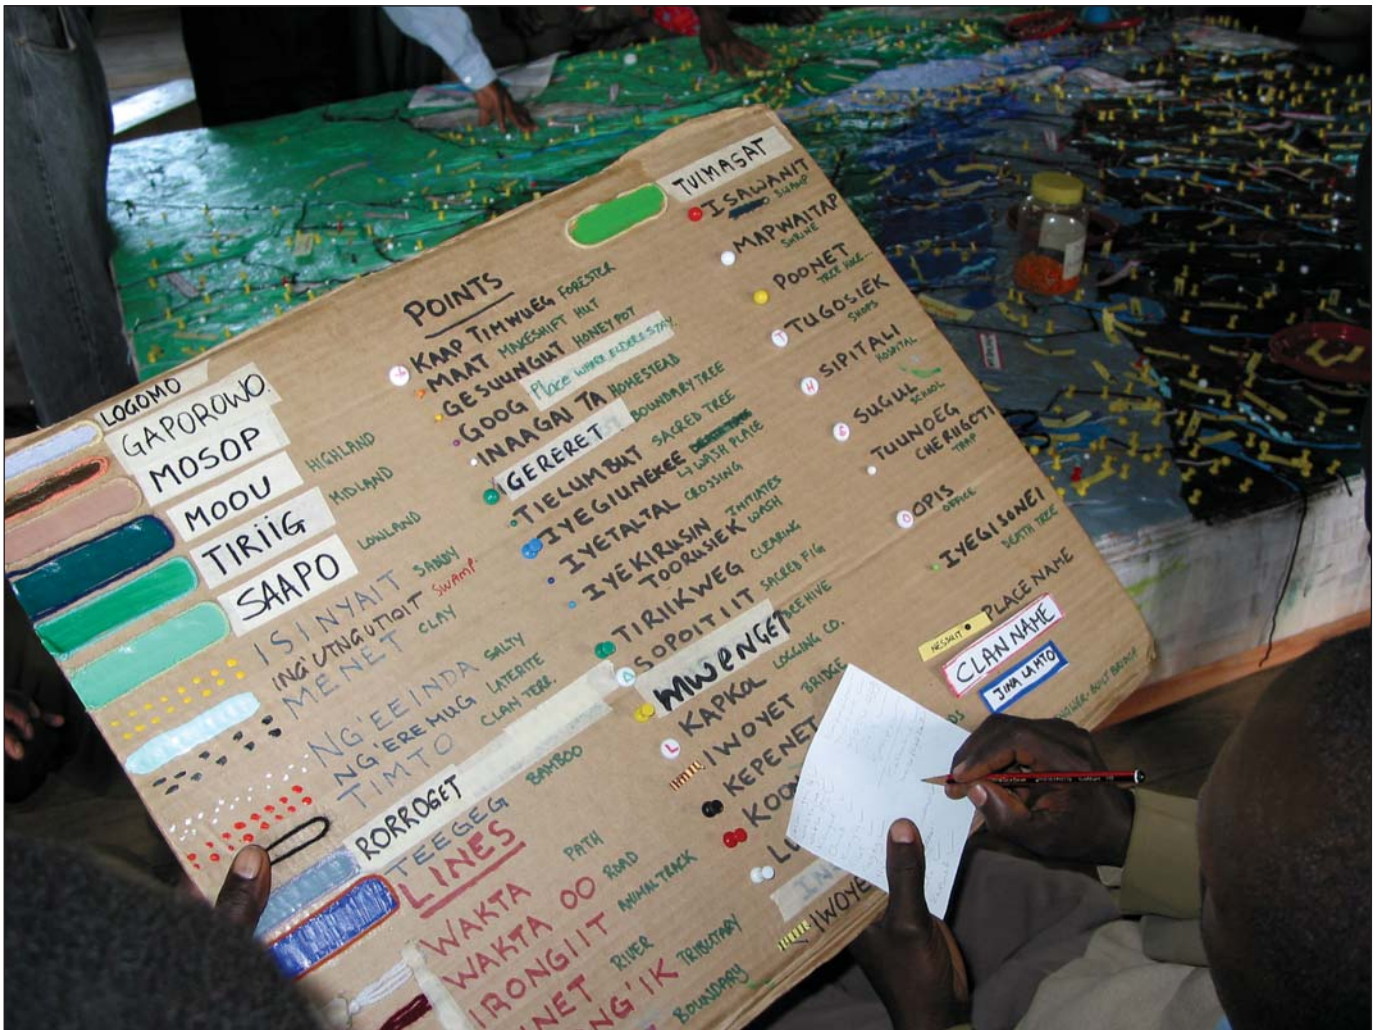 LOGOMO
GAPOROWO.
MOSOP HIGHLAND
MOOU MIDLAND
TIRIIG LOWLAND
SAAPO
ISINYAIT SANDY
ING'UTNGUTIOIT SWAMP.
MENET CLAY
NG'EEINDA SALTY
NG'EREMUG LATERITE
TIMTO CLAN TERR.
RORROGET
TEEGEG BAMBOO
LINES
WAKTA PATH
WAKTA OO ROAD
IRONGIIT ANIMAL TRACK
RIVER
TRIBUTARY
BOUNDARY
POINTS
KAAP TIMWUEG FORESTER
MAAT MAKESHIFT HUT
GESUUNGUT HONEY POT
GOOG Place WHERE ELDERS STAY.
INAAGAI TA HOMESTEAD
GERERET BOUNDARY TREE
TIELUMBUT SACRED TREE
IYEGIUNEKEE WASH PLACE
IYETALTAL CROSSING
IYEKIRUSIN TOORUSIEK INITIATES WASH
TIRIIKWEG CLEARING
SOPOITIIT SACRED FIG
MWENGET BEEHIVE
L KAPKOL LOGGING CO.
IWOYET BRIDGE
KEPENET
TUIMASAT
ISAWANIT SWAMP
MAPWAITAP SHRINE
POONET
T TUGOSIEK SHOPS
H SIPITALI HOSPITAL
SUGUL SCHOOL
TUUNOEG CHERINGOTI TRAP
O OPIS OFFICE
IYEGISONEI DEATH TREE
NESSUIT PLACE NAME
CLAN NAME
JINA LA MTO